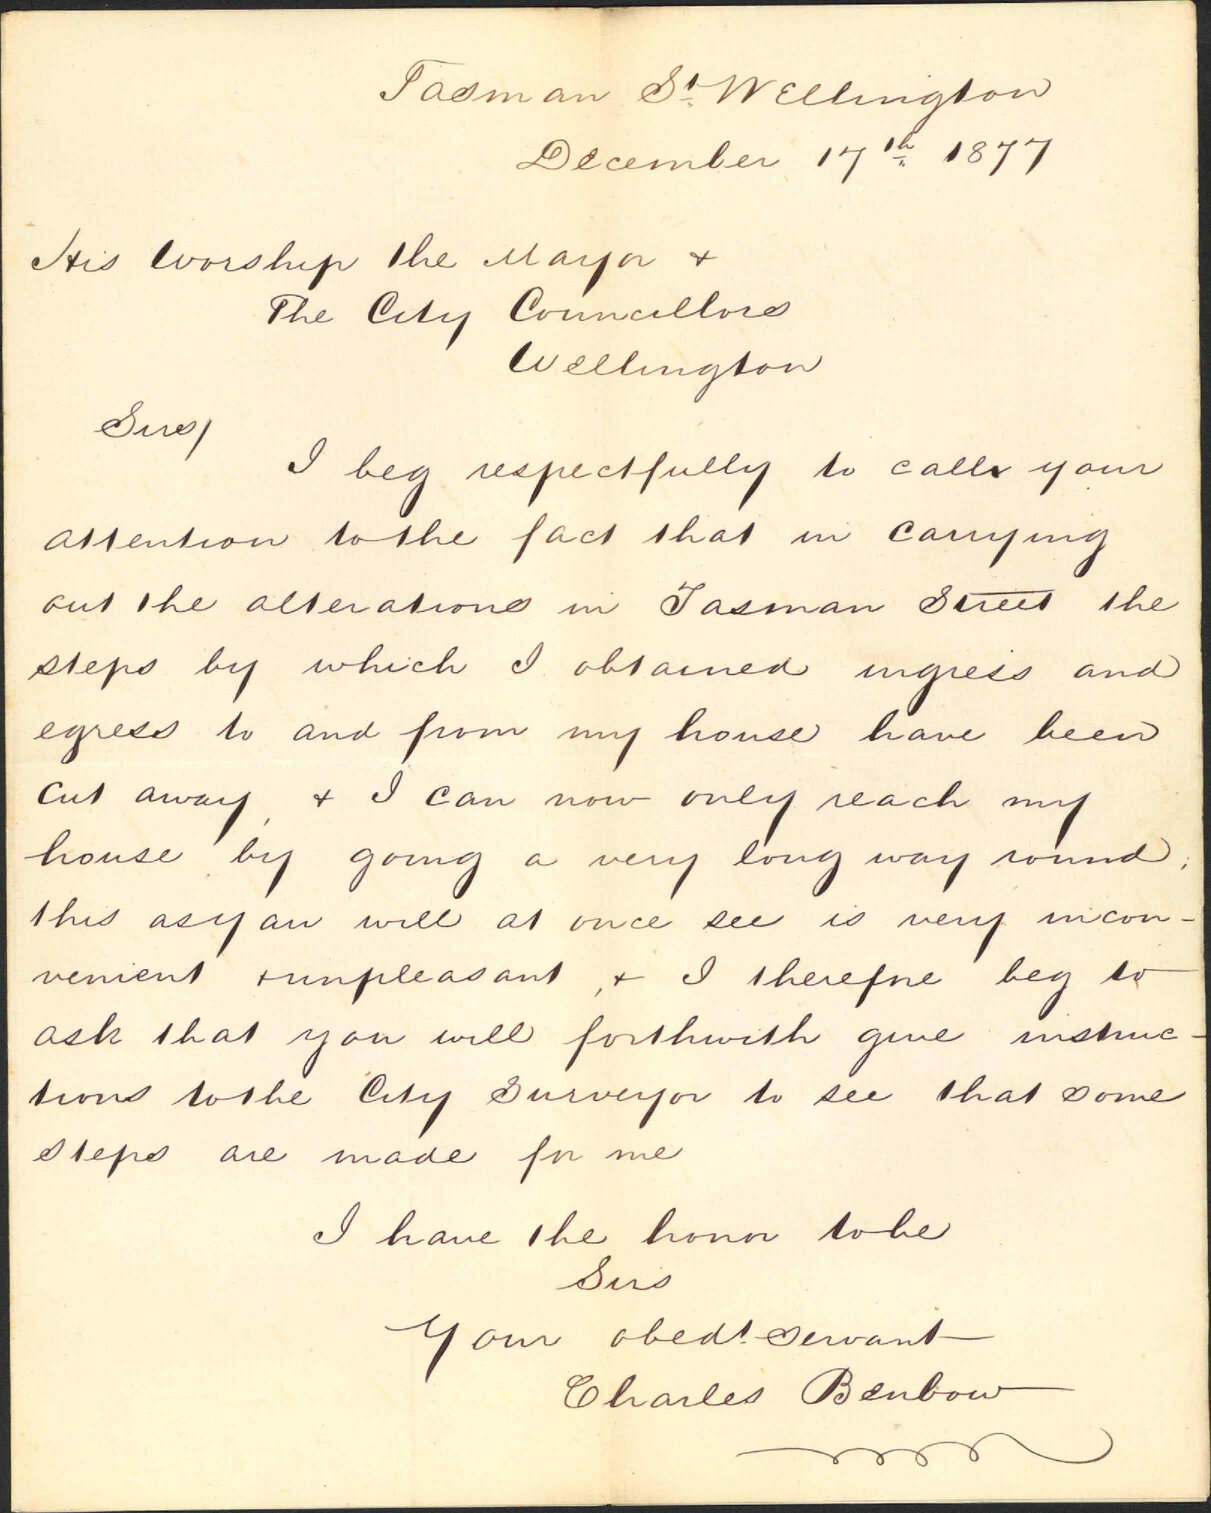 Tasman St. Wellington
December 17th. 1877
His Worship the Mayor +
The City Councillors
Wellington
Sirs/
I beg respectfully to call your
attention to the fact that in carrying
out the alterations in Tasman Street the
steps by which I obtained ingress and
egress to and from my house have been
cut away, + I can now only reach my
house by going a very long way round;
this as you will at once see is very incon-
venient + unpleasant, + I therefore beg to
ask that you will forthwith give instruc-
tions to the City Surveyor to see that some
steps are made for me
I have the honor to be
Sirs
Your obedt. servant
Charles Benbow